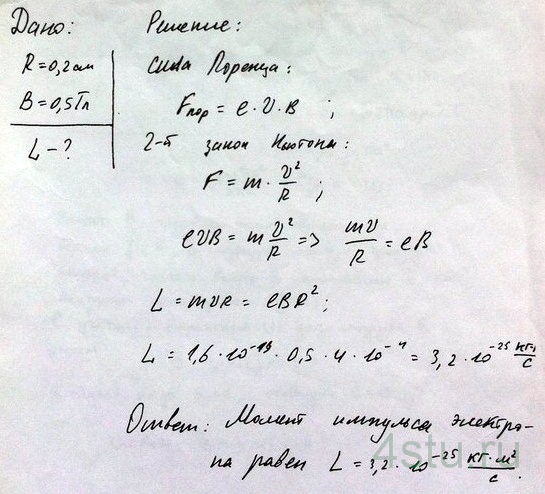 Дано:
R = 0,2 см
B = 0,5 Тл
L - ?
Решение:
Сила Лоренца:
Fлор = e · v · B ;
2-й закон Ньютона:
F = m · v²/R ;
evB = m v²/R => mv/R = eB
L = mvR = eBR²;
L = 1,6 · 10⁻¹⁹ · 0,5 · 4 · 10⁻⁴ = 3,2 · 10⁻²⁵
Ответ: Момент импульса электро-
на равен L = 3,2 · 10⁻²⁵ кг·м²/с.
4stu.ru